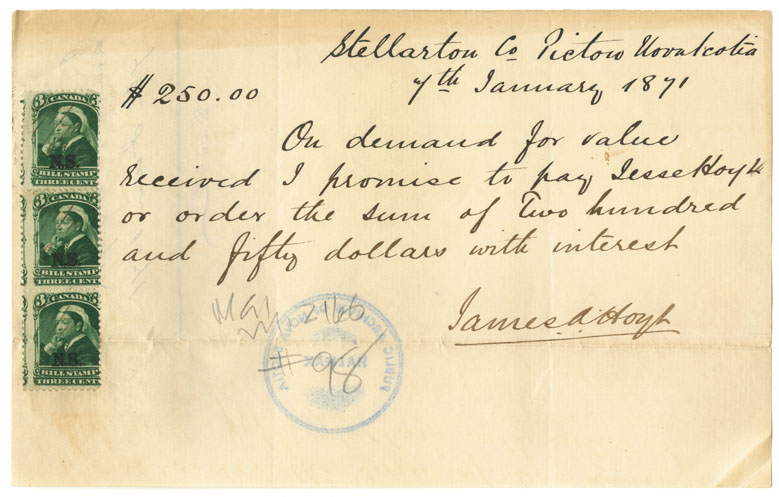 Stellarton Co Pictou Nova Scotia
$250.00 7th January 1871
On demand for value
received I promise to pay Jesse Hoyt
or order the sum of Two hundred
and fifty dollars with interest
James A Hoyt
3 CANADA 3
N.S.
BILL STAMP
THREE CENTS
3 CANADA 3
N.S.
BILL STAMP
THREE CENTS
3 CANADA 3
N.S.
BILL STAMP
THREE CENTS
2166
# 98
PUBLIC ARCHIVES OF NOVA SCOTIA
HALIFAX